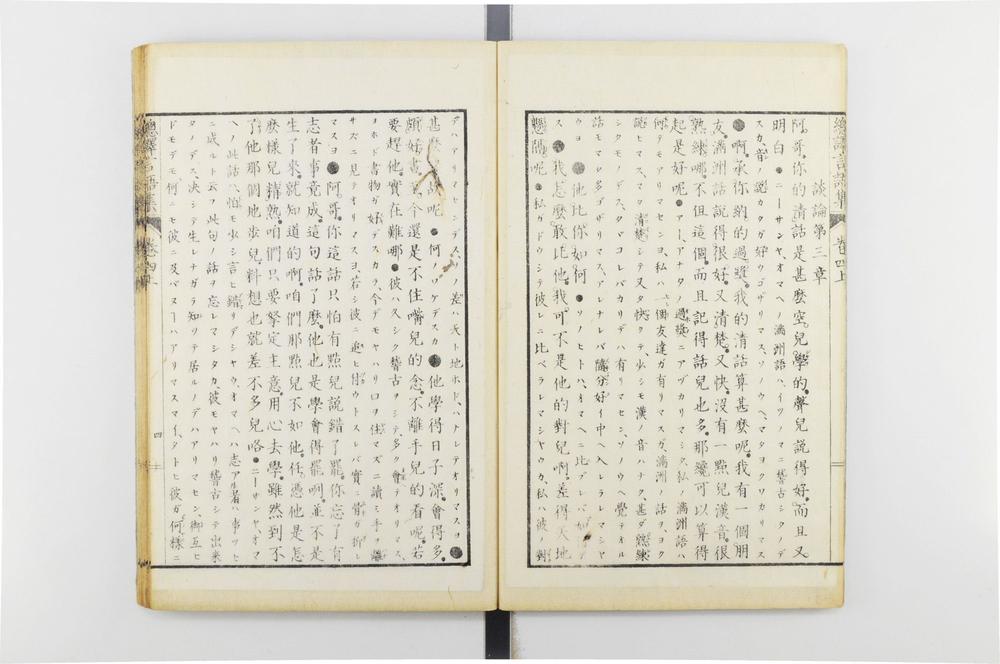 談論第三章
阿哥。你的清話是甚麼空兒學的。聲兒說得好。而且又
明白●ニーサンヤ、オマヘノ滿洲語ハ、イツノマニ督古シタノデ
スカ、音ノ認カタガ好ウゴザリマス、ソノウヘ、マタヨクワカリマス
●啊。承你納的過獎。我的清話算甚麼呢。我有一個朋
友。滿洲話說得很好。又清楚。又快。沒有一點兒漢音。很
熟練哪。不但這個。而且記得話兒也多。那纔可以算得
起是好呢●アー、アナタノ過獎ニアヅカリマシタ、私ノ滿洲語ハ
何デモアリマセンヨ、私ハ一個友達ガ有リマスガ、滿洲ノ話ヲ、ヨク
說ヒマス、マタ清楚シテ又タ快クテ、少シモ漢ノ音ハナク、甚ダ熟練
シクモノデス、タヾコレバカリデハ有リマセン、ソノウヘ覺テオル
話モマタ多ゴザリマス、アレナレバ、隨分好イ中ヘ入レラレマシヤ
ウヨ●他比你如何●ソノヒトハ、オマヘニ比ブレバ、
ス●我怎麼敢比他。我可不是他的對兒啊。差得天地
懸隔呢●私ガドウシテ彼レニ比ベラレマシヤウカ、私ハ彼ノ對
デハアリマセンデス、ソノ差ハ天ト地ホド、ハナレテオリマスヨ●
甚麼 呢●何ノワケデスカ●他學得日子深。會得多。
頗好書。今還是不住嘴兒的念。不離手兒的看呢。若
要趕他。實在難哪●彼ハ久シク督古ヲシテ、多ク會テオリマス、
ヨホド書物ガ好デスカラ、今デモヤハリ口ヲ住マズニ讀ミ手ヲ離
サズニ見テオリマスヨ、若シ彼ニ追ヒ付ウトスレバ實ニ骨ガ折レ
マスヨ●阿哥。你這話只怕有點兒說錯了罷。你忘了有
志者事竟成。這句話了麼。他也是學會得罷咧。並不是
生了來。就知道的啊。咱們那點兒不如他。任憑他是怎
麼樣兒精熟。咱們只要拏定主意。用心去學。雖然到不
了他那個地步兒。料想也就差不多兒咯●ニーサンヤ、オマ
ヘノ此話ハ、怕モ少シ言ヒ錯リデシヤウ、オマヘハ、志アル者ハ事ツヒ
ニ成ルト云フ此句ノ話ヲ忘レマシタカ、彼モヤハリ督古シテ出來
タノデス、决シテ生レナガラ知リテ居ルノデハアリマセン、御互ヒ
ドモデモ、何ニモ彼ニ及バヌヿハアリマスマイ、タトヒ彼ガ何樣ニ
四
卷四上